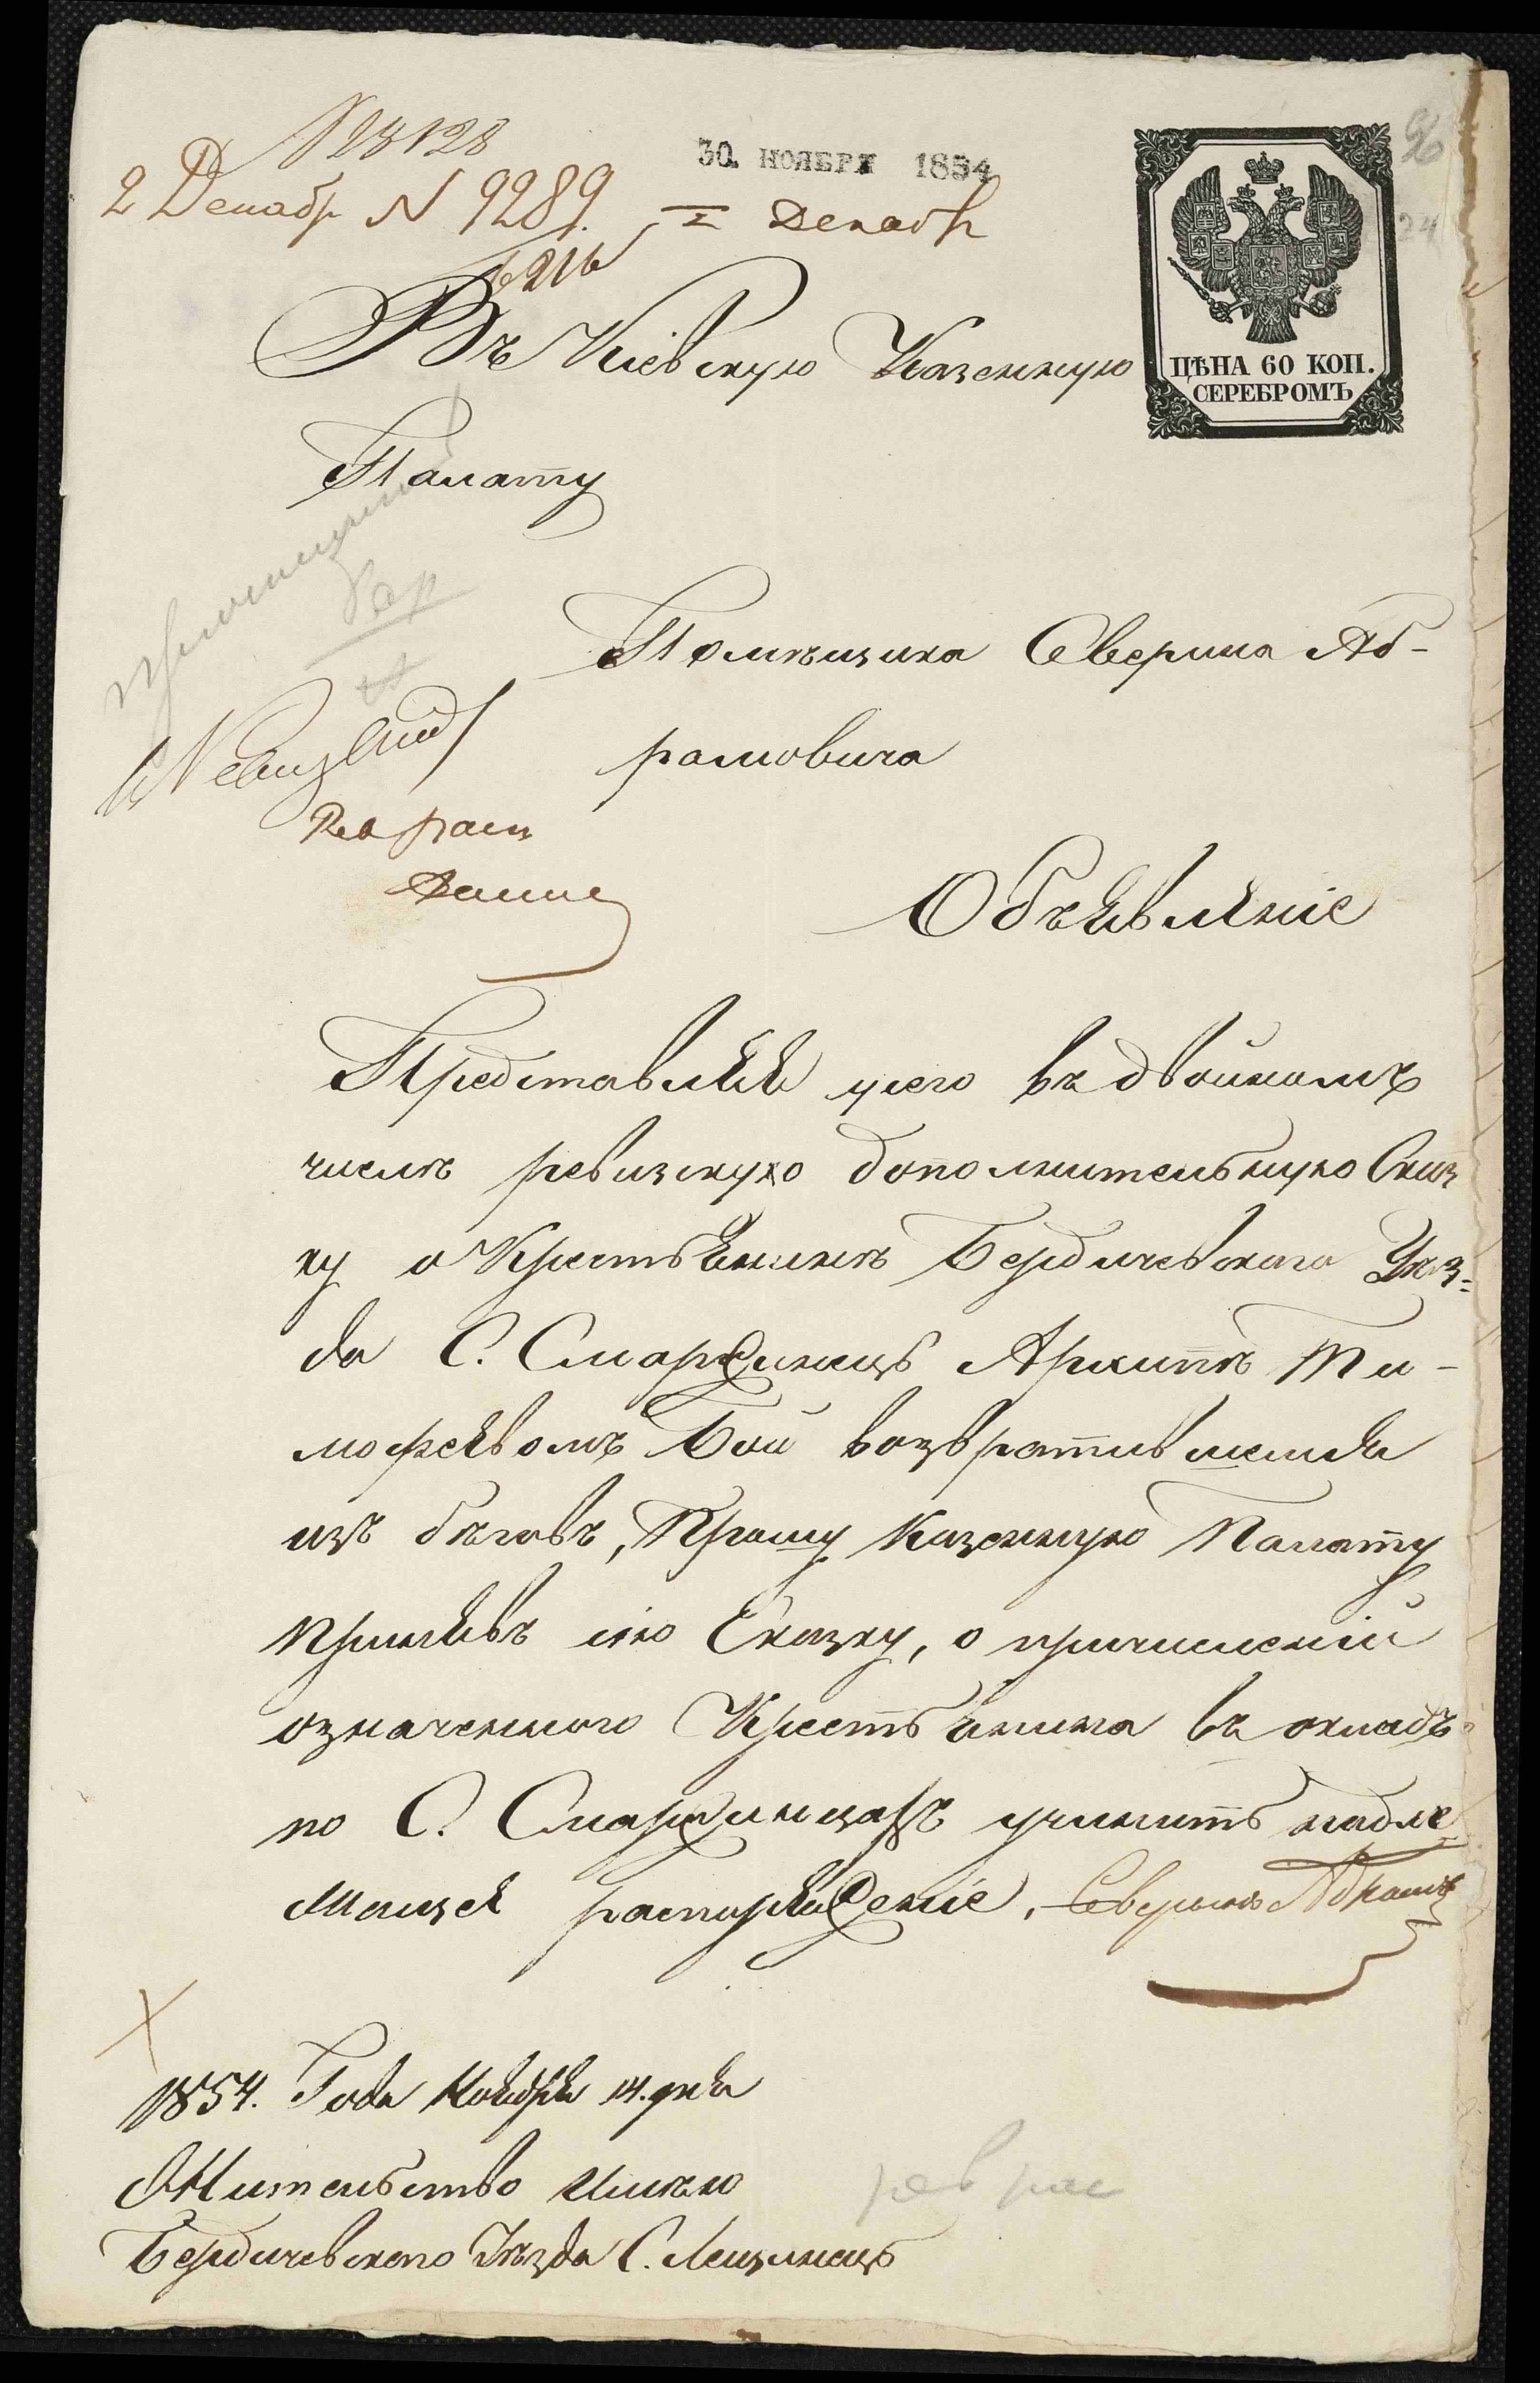 2 Декабр N 9289.
30 НОЯБРЯ 1854
I Декабр
ЦѢНА 60 КОП.
СЕРЕБРОМЪ
24
Въ Кіевскую Казенную
Палату
Помѣщика Северина Аб-
рамовича
Рев расп
Объявленіе
Представляя у сего въ двойномъ
числѣ ревизскую дополнительную Сказ
ку о Крестьянинѣ Бердичевскаго Уѣз-
да С. Смаржинецъ Архипѣ Ти-
мофеявомъ Бой возвратившемся
изъ бѣговъ, Прошу Казенную Палату
принявъ сію Сказку, о причисленій
означенного Крестьянина въ окладъ
по С. Смаржинцахъ учинить надле
жащея распоряженіе. Северинъ Абрам
1854. Года Ноября 14. дня
Жительство Имѣю
Бердичевского Уѣзда С. Лещинецъ
рев рас